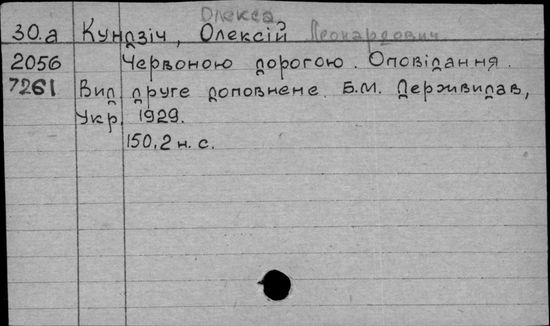 Олекса
30.а Кундзіч, Олексій Леонардович.
2056 Червоною дорогою. Оповідання.
7261 Вид. друге доповнене. Б.М. Держвидав,
Укр. 1929.
150,2 н. с.